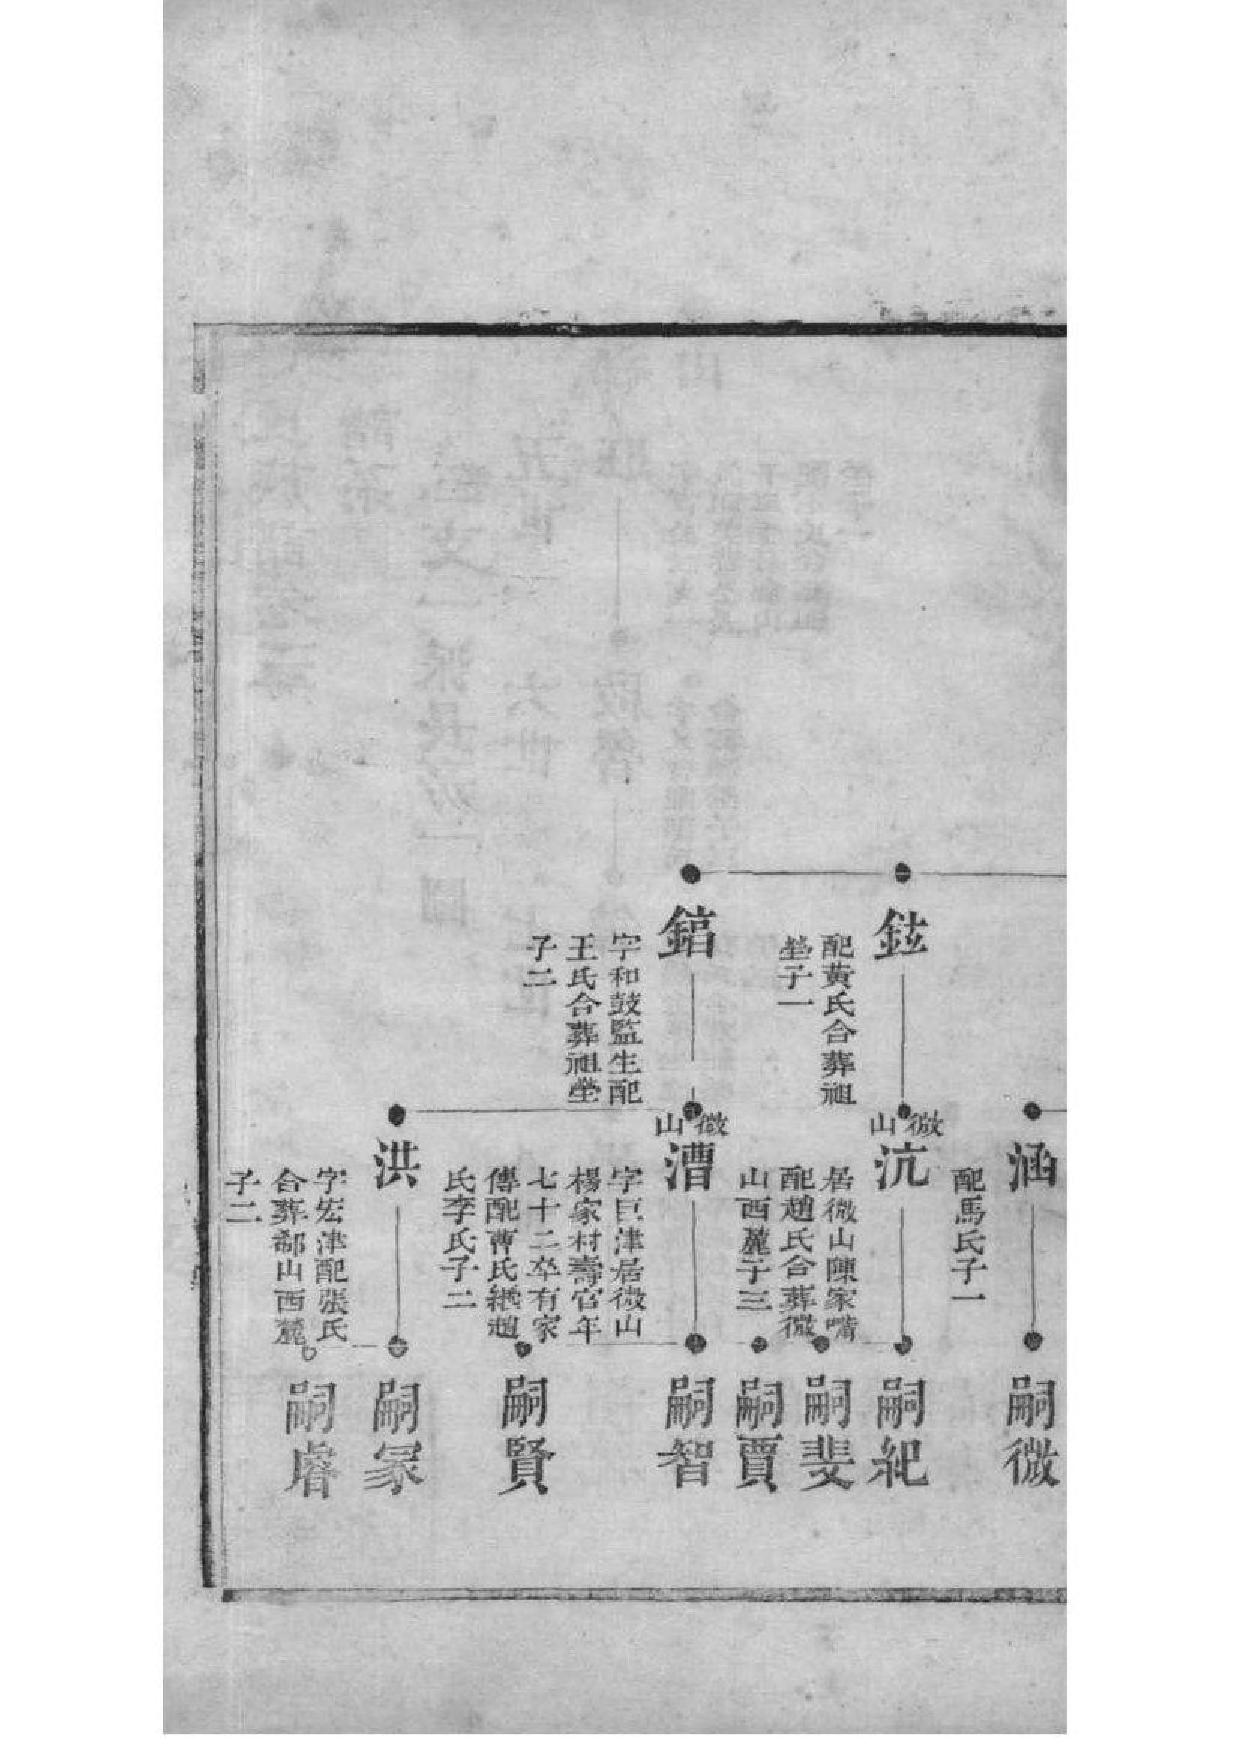 鉉
配黃氏合葬祖
塋子一
錧
字和鼓監生配
王氏合葬祖塋
子二
涵
配馬氏子一
微山
沆
居微山陳家嘴
配趙氏合葬微
山西麓子三
微山
漕
字巨津居微山
楊家村壽官年
七十二卒有家
傳配曹氏繼趙
氏李氏子二
洪
字宏津配張氏
合葬郗山西麓
子二
嗣微
嗣紀
嗣斐
嗣賈
嗣智
嗣賢
嗣冡
嗣睿